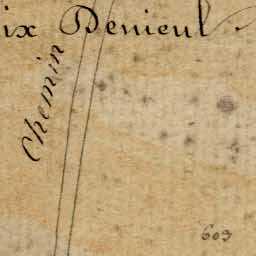 ix Denieul
Chemin
603